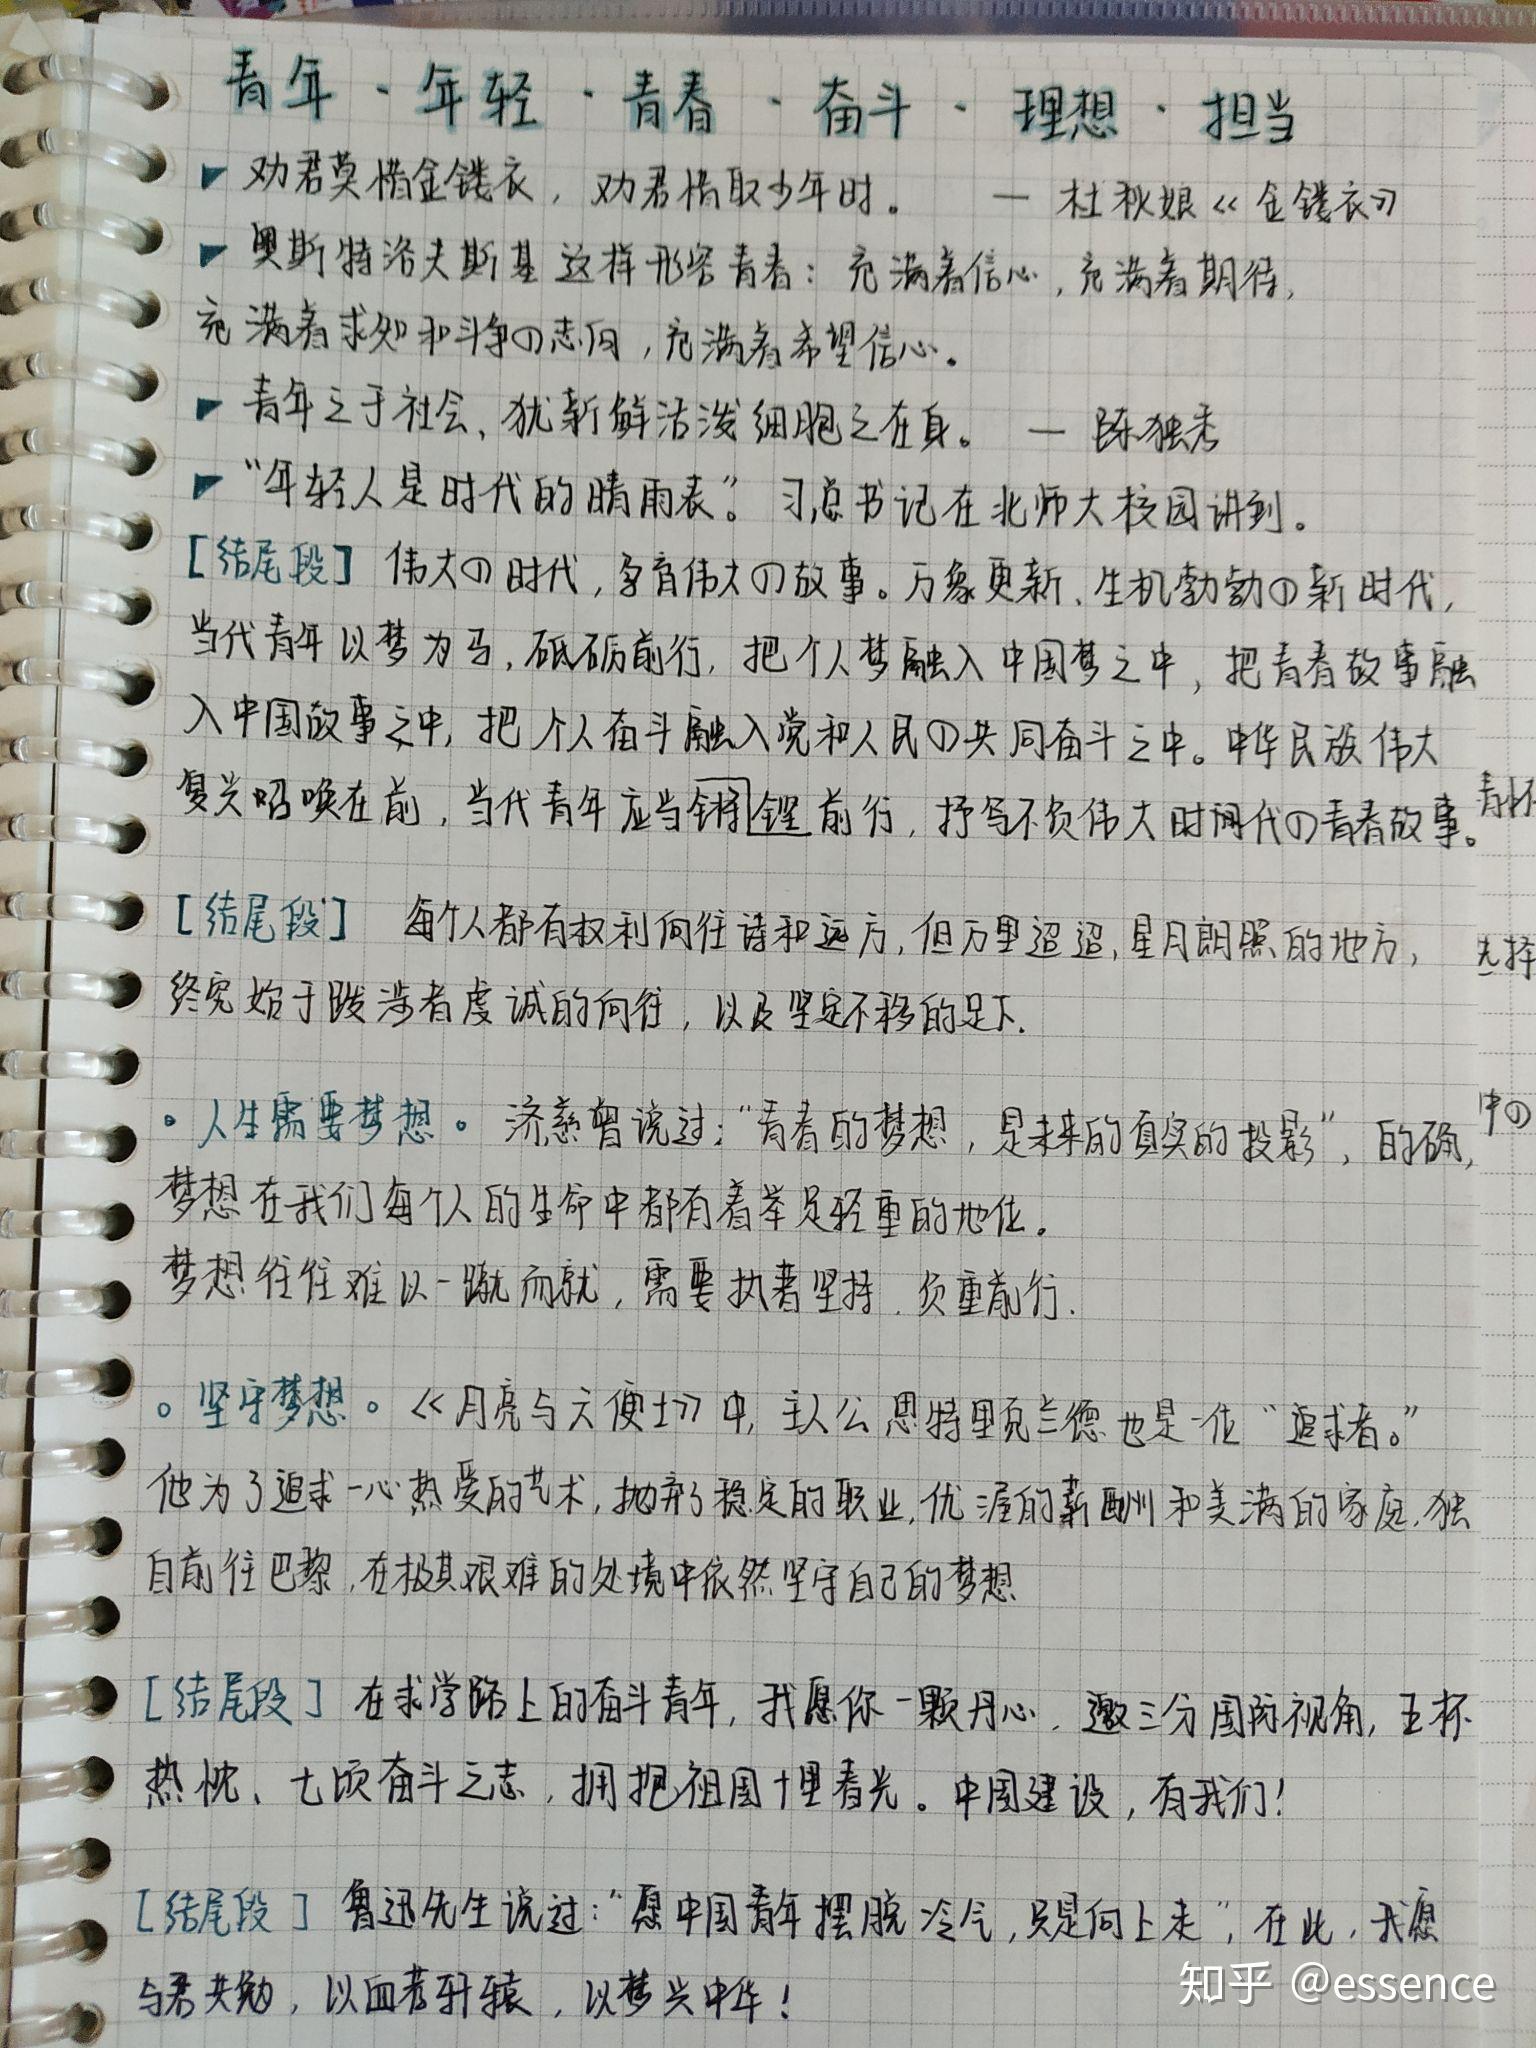 青年·年轻·青春·奋斗·理想·担当
劝君莫惜金镂衣，劝君惜取少年时。 — 杜秋娘《金镂衣》
奥斯特洛夫斯基这样形容青春：充满着信心，充满着期待，
充满着求知和斗争の志向，充满着希望信心。
青年之于社会、犹新鲜活泼细胞之在身。 — 陈独秀
“年轻人是时代的晴雨表”。习总书记在北师大校园讲到。
[结尾段] 伟大の时代，孕育伟大の故事。万象更新、生机勃勃の新时代，
当代青年以梦为马，砥砺前行，把个人梦融入中国梦之中，把青春故事融
入中国故事之中，把个人奋斗融入党和人民の共同奋斗之中。中华民族伟大
复兴号唤在前，当代青年应当锵铿前行，抒写不负伟大时代の青春故事。
[结尾段] 每个人都有权利向往诗和远方，但万里迢迢，星月朗照的地方，
终究始于跋涉者虔诚的向往，以及坚定不移的足下.
。人生需要梦想。济慈曾说过：“青春的梦想，是未来的真实的投影”，的确，
梦想在我们每个人的生命中都有着举足轻重的地位。
梦想往往难以一蹴而就，需要执着坚持、负重前行.
。坚守梦想。《月亮与六便士》中，主人公思特里克兰德也是一位“追求者。”
他为了追求一心热爱的艺术，抛弃了稳定的职业，优渥的薪酬和美满的家庭，独
自前往巴黎，在极其艰难的处境中依然坚守自己的梦想
[结尾段] 在求学路上的奋斗青年，我愿你一颗丹心、邀三分国际视角，五杯
热忱、七顷奋斗之志，拥抱祖国十里春光。中国建设，有我们！
[结尾段] 鲁迅先生说过：“愿中国青年摆脱冷气，只是向上走”，在此，我愿
与君共勉，以血荐轩辕，以梦兴中华！
中の
知乎 @essence